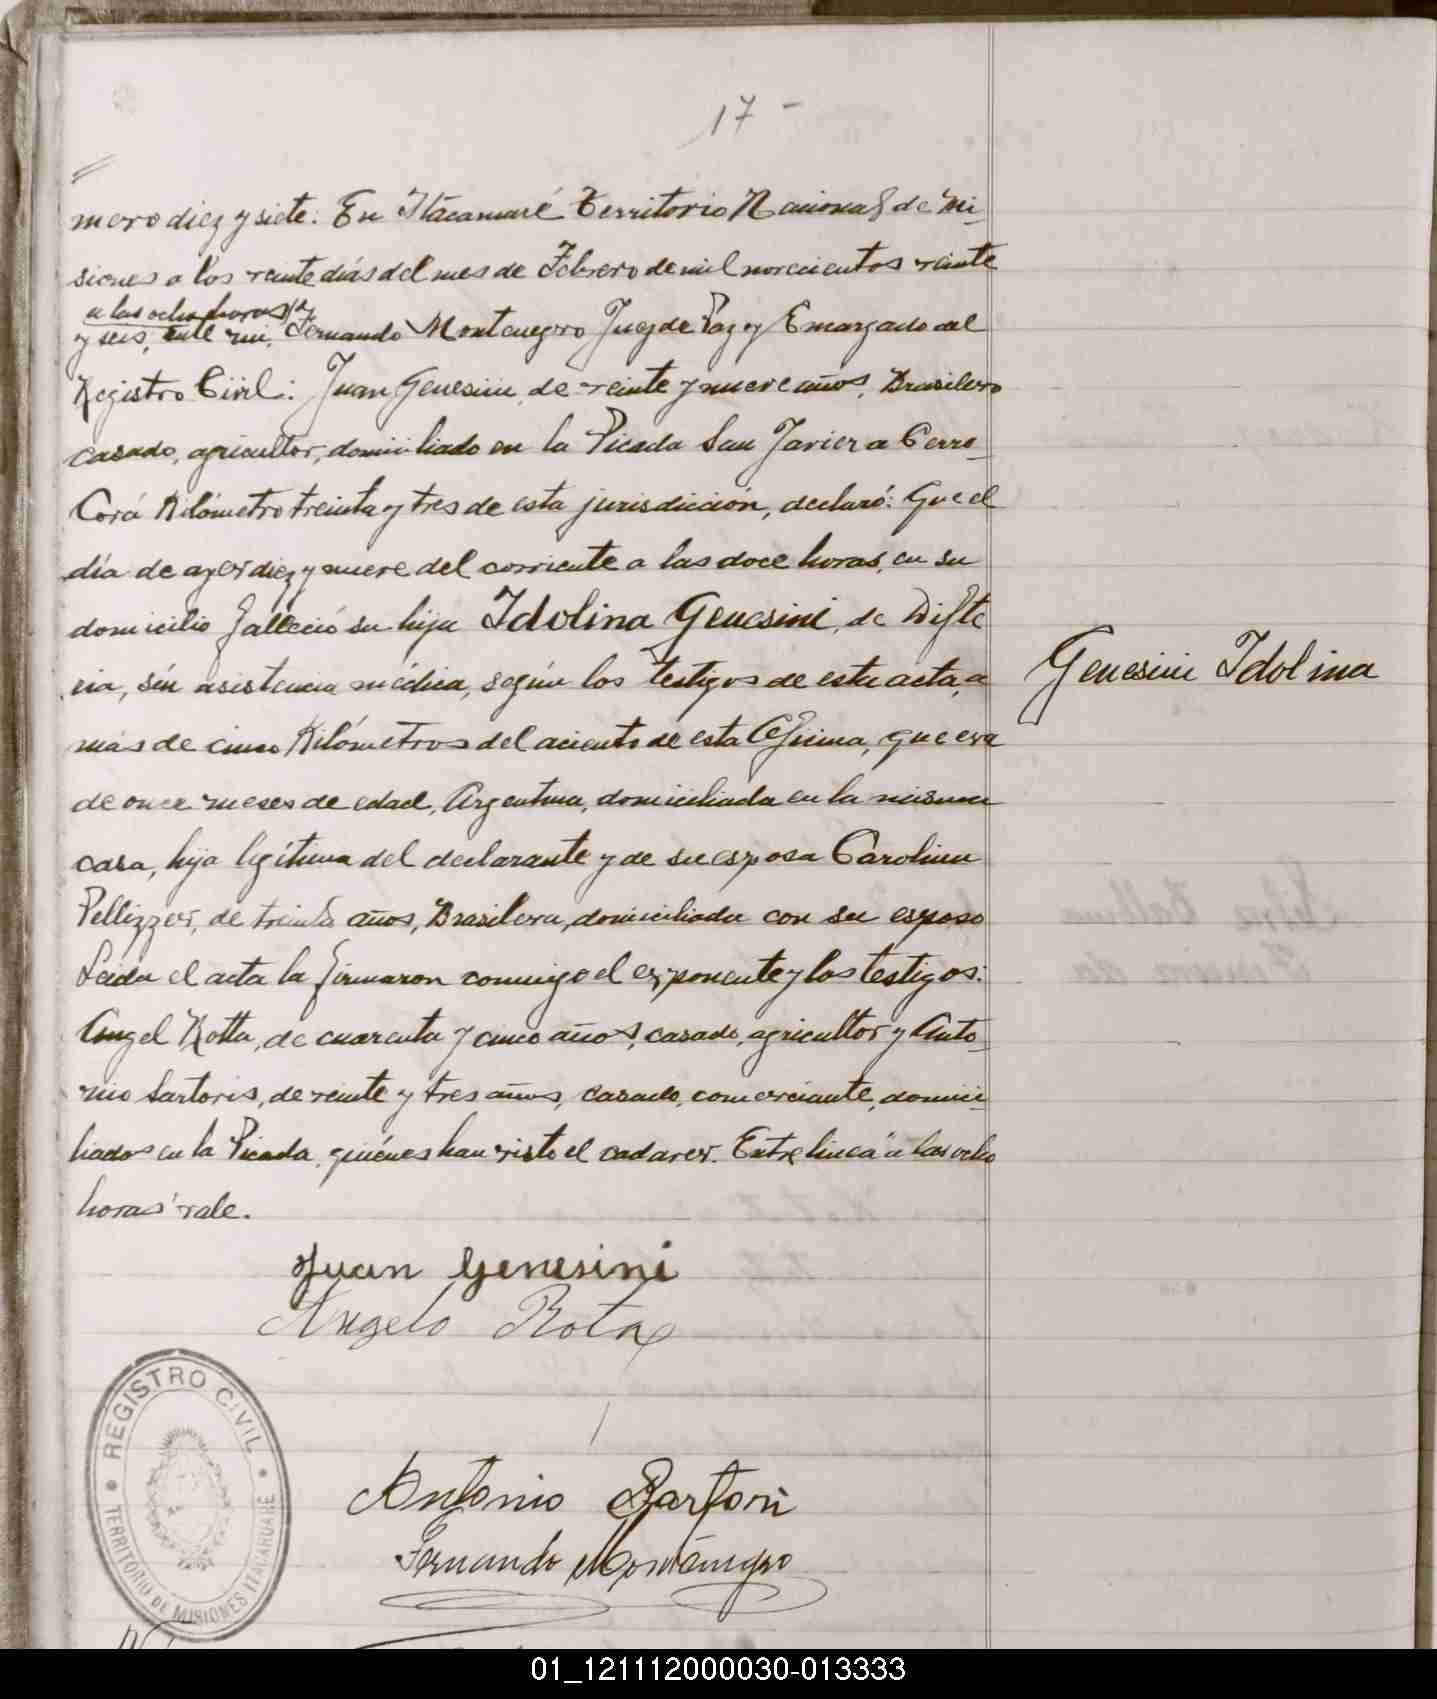 17 -
mero diez y siete: En Itacaruaré Territorio Nacional de Mi-
siones a los veinte dias del mes de Febrero de mil novecientos veinte
a las ocho horas
y seis, ante mi, Fernando Montenegro Juez de Paz y Encargado del
Registro Civil: Juan Genesini, de veinte y nueve años, Brasilero
casado, agricultor, domiciliado en la Picada San Javier a Cerro
Corá Kilómetro treinta y tres de esta jurisdicción, declaró: Que el
día de ayer diez y nueve del corriente a las doce horas, en su
domicilio falleció su hija Idolina Genesini, de Difte
ria, sin asistencia médica, según los testigos de esta acta, a
más de cinco Kilómetros del aciento de esta Oficina, que era
de once meses de edad, Argentina, domiciliada en la misma
casa, hija legítima del declarante y de su esposa Carolina
Pellizzer, de treinta años, Brasilera, domiciliada con su esposo
Leida el acta la firmaron conmigo el exponente y los testigos:
Angel Rotta, de cuarenta y cinco años, casado, agricultor y Anto-
nio Sartoris, de veinte y tres años, casado, comerciante, domici-
liados en la Picada, quiénes han visto el cadaver. Entre linea "a las ocho
horas" vale.
Genesini Idolina
Juan Genesini
Angelo Rota
Antonio Sartori
Fernando Montenegro
REGISTRO CIVIL
TERRITORIO DE MISIONES ITACARUARE
01_121112000030-013333